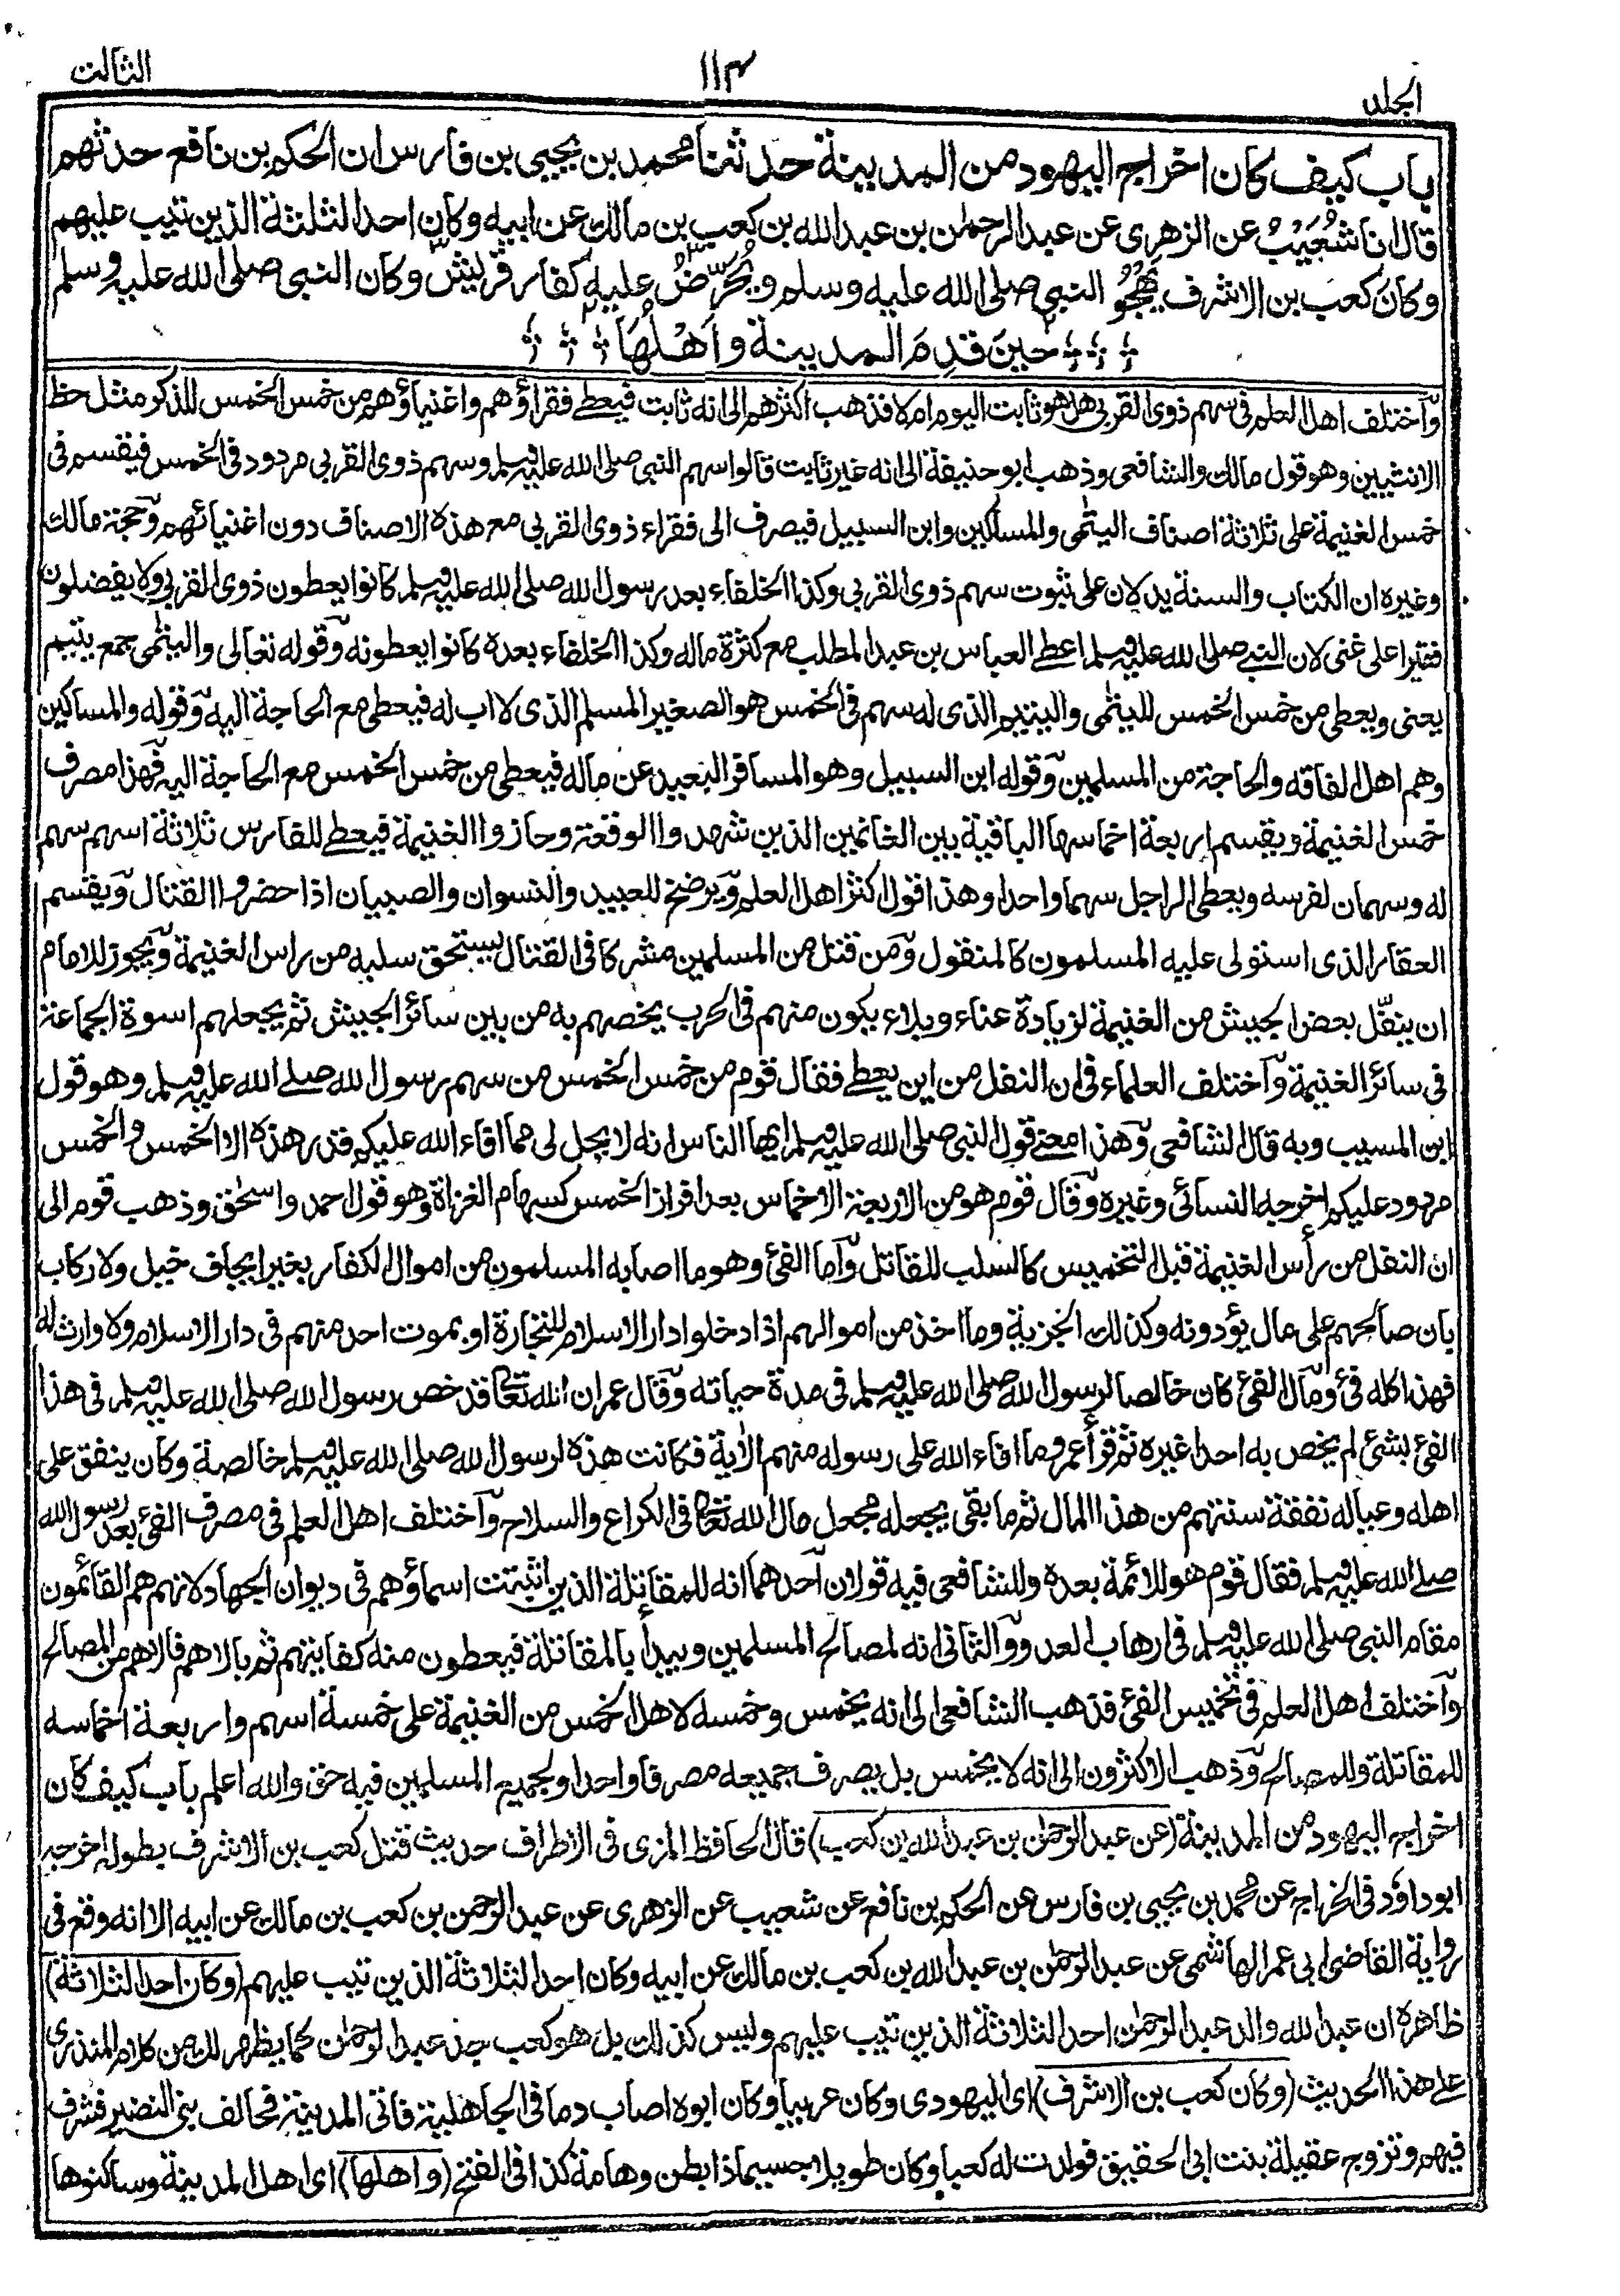 الجلد
١١٣
الثالث
باب كيف كان اخراج اليهود من المدينة حدثنا محمد بن يحيى بن فارس ان الحكم بن نافع حدثهم
قال انا شُعَيْبٌ عن الزهرى عن عبد الرحمٰن بن عبد الله بن كعب بن مالك عن ابيه وكان احد الثلثة الذين تيب عليهم
وكانَ كعب بن الاشرف يَهْجُو النبى صلى الله عليه وسلم ويُحَرِّضُ عليه كفار قريش وكان النبى صلى الله عليه وسلم
حِينَ قَدِمَ المدينة وَاَهْلُهَا
وآختلف اهل العلم فى سهم ذوى القربى هل هو ثابت اليوم ام لا فذهب اكثرهم الى انه ثابت فيعطے فقراؤهم واغنياؤهم من خمس الخمس للذكر مثل حظ
الانثيين وهو قول مالك والشافعى وذهب ابو حنيفة الى انه غير ثابت قالوا سهم النبى صلى الله عليه وسلم وسهم ذوى القربى مردود فى الخمس فيقسم فى
خمس الغنيمة على ثلاثة اصناف اليتمٰى والمساكين وابن السبيل فيصرف الى فقراء ذوى القربى مع هذه الاصناف دون اغنيائهم وحجة مالك
وغيره ان الكتاب والسنة يدلان على ثبوت سهم ذوى القربى وكذا الخلفاء بعد رسول الله صلى الله عليه وسلم كانوا يعطون ذوى القربى ولا يفضلون
فقيرا على غنى لان النبى صلى الله عليه وسلم اعطے العباس بن عبد المطلب مع كثرة ماله وكذا الخلفاء بعده كانوا يعطونه وقوله تعالى واليتمٰى جمع يتيم
يعنى ويعطى من خمس الخمس لليتمٰى واليتيم الذى له سهم فى الخمس هو الصغير المسلم الذى لا اب له فيعطى مع الحاجة اليه وقوله والمساكين
وهم اهل الفاقه والحاجة من المسلمين وقوله ابن السبيل وهو المسافر البعيد عن ماله فيعطى من خمس الخمس مع الحاجة اليه فهذا مصرف
خمس الغنيمة ويقسم اربعة اخماسها الباقية بين الغانمين الذين شهدوا الوقعة وحازوا الغنيمة فيعطے للفارس ثلاثة اسهم سهم
له وسهمان لفرسه ويعطى الراجل سهما واحدا وهذا قول اكثر اهل العلم ويرضخ للعبيد والنسوان والصبيان اذا حضروا القتال ويقسم
العقار الذى استولى عليه المسلمون كالمنقول ومن قتل من المسلمين مشركا فى القتال يستحق سلبه من راس الغنيمة ويجوز للامام
ان ينفّل بعض الجيش من الغنيمة لزيادة عناء وبلاء يكون منهم فى الحرب يخصهم به من بين سائر الجيش ثم يجعلهم اسوة الجماعة
فى سائر الغنيمة وآختلف العلماء فى ان النفل من اين يعطے فقال قوم من خمس الخمس من سهم رسول الله صلے الله عليه وسلم وهو قول
ابن المسيب وبه قال الشافعى وهذا معنے قول النبى صلى الله عليه وسلم ايها الناس انه لا يحل لى مما افاء الله عليكم قدر هذه الا الخمس والخمس
مردود عليكم اخرجه النسائى وغيره وقال قوم هو من الاربعة الاخماس بعد افراز الخمس كسهام الغزاة وهو قول احمد واسحٰق وذهب قوم الى
ان النفل من رأس الغنيمة قبل التخميس كالسلب للقاتل وآما الفئ وهو ما اصابه المسلمون من اموال الكفار بغير ايجاف خيل ولا ركاب
بان صالحهم على مال يؤدونه وكذلك الجزية وما اخذ من اموالهم اذا دخلوا دار الاسلام للتجارة او بموت احد منهم فى دار الاسلام ولا وارث له
فهذا كله فئ ومال الفئ كان خالصا لرسول الله صلى الله عليه وسلم فى مدة حياته وقال عمر ان الله تعالى قد خص رسول الله صلى الله عليه وسلم فى هذا
الفئ بشئ لم يخص به احدا غيره ثم قرأ عمر وما افاء الله على رسوله منهم الاٰية فكانت هذه لرسول الله صلى الله عليه وسلم خالصة وكان ينفق على
اهله وعياله نفقة سنتهم من هذا المال ثم ما بقى يجعله مجعل مال الله تعالى فى الكراع والسلاح وآختلف اهل العلم فى مصرف الفئ بعد رسول الله
صلے الله عليه وسلم فقال قوم هو للائمة بعده وللشافعى فيه قولان آحدهما انه للمقاتلة الذين اثبتت اسماؤهم فى ديوان الجهاد لانهم هم القائمون
مقام النبى صلى الله عليه وسلم فى ارهاب العدو والثانى انه لمصالح المسلمين ويبدأ بالمقاتلة فيعطون منه كفايتهم ثم بالاهم فالاهم من المصالح
وآختلف اهل العلم فى تخميس الفئ فذهب الشافعى الى انه يخمس وخمسه لاهل الخمس من الغنيمة على خمسة اسهم واربعة اخماسه
للمقاتلة وللمصالح وذهب الاكثرون الى انه لا يخمس بل يصرف جميعه مصرفا واحدا ولجميع المسلمين فيه حق والله اعلم باب كيف كان
اخراج اليهود من المدينة (عن عبد الرحمٰن بن عبد الله بن كعب) قال الحافظ المزى فى الاطراف حديث قتل كعب بن الاشرف بطوله اخرجه
ابو داؤد فى الخراج عن محمد بن يحيى بن فارس عن الحكم بن نافع عن شعيب عن الزهرى عن عبد الرحمٰن بن كعب بن مالك عن ابيه الا انه وقع فى
رواية القاضى ابى عمر الهاشمى عن عبد الرحمٰن بن عبد الله بن كعب بن مالك عن ابيه وكان احد الثلاثة الذين تيب عليهم (وكان احد الثلاثة)
ظاهره ان عبد الله والد عبد الرحمٰن احد الثلاثة الذين تيب عليهم وليس كذلك بل هو كعب جد عبد الرحمٰن كما يظهر لك من كلام المنذرى
علے هذا الحديث (وكان كعب بن الاشرف) اى اليهودى وكان عربيا وكان ابوه اصاب دما فى الجاهلية فاتى المدينة فحالف بنى النضير فشرف
فيهم وتزوج عقيلة بنت ابى الحقيق فولدت له كعبا وكان طويلا جسيما ذا بطن وهامة كذا فى الفتح (واهلها) اى اهل المدينة وساكنوها